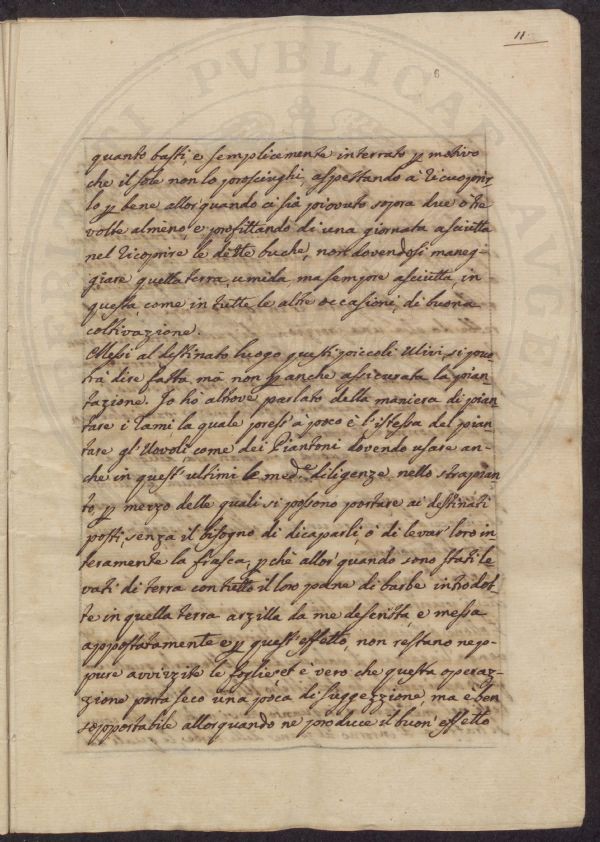 11
6
quanto basti, e semplicemente interrato p motivo
che il sole non lo prosciughi, aspettando à ricuoprir=
lo p bene allor quando ci sia piovuto sopra due ò tre
volte almeno, e profittando di una giornata asciutta
nel ricoprire le dette buche, non dovendosi maneg=
giare quella terra, umida, ma sempre asciutta, in
questa, come in tutte le altre occasioni, di buona
coltivazione.
Messi al destinato luogo questi piccoli Ulivi, si po
trà dire fatta, mà non p anche assicurata la pian
tazione. Io hò altrove parlato della maniera di pian
tare i Rami, la quale press' à poco è l'istessa del pian
tare gl' Uovoli come dei Piantoni dovendo usare an=
che in quest' ultimi le med.e diligenze nello strapian
to, p mezzo delle quali si possono portare ai destinati
posti, senza il bisogno di dicaparli, ò di levar' loro in
teramente la frasca, pchè allor' quando sono stati le
vati di terra con tutto il loro pane di barbe introdot
te in quella terra arzilla da me descritta, e messa
appostatamente e p quest' effetto, non restano nep=
pure avvizzite le foglie, et è vero che questa operaz=
zione porta seco una poca di suggezzione ma è ben
sopportabile allorquando ne produce il buon' effetto